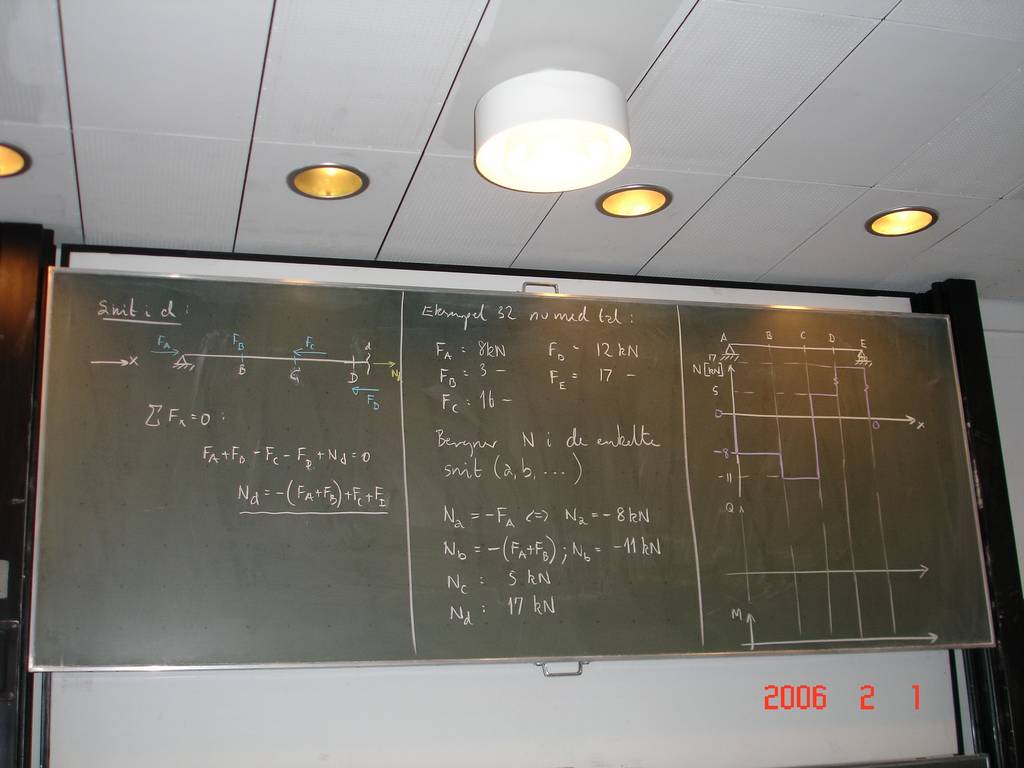 Snit i d:
F_A F_B F_C d
x B C D N_d
F_D
ΣF_x=0:
F_A+F_B-F_C-F_D+N_d=0
N_d=-(F_A+F_B)+F_C+F_D
Eksempel 32 numed tal:
F_A = 8kN F_D = 12 kN
F_B = 3 - F_E = 17 -
F_C = 16 -
Beregner N i de enkelte
snit (a, b, ...)
N_a = -F_A <=> N_a = -8kN
N_b = -(F_A+F_B); N_b = -11kN
N_c : 5 kN
N_d : 17 kN
A B C D E
17
N [kN]
5
0 0 x
-8
-11
Q
M
2006 2 1